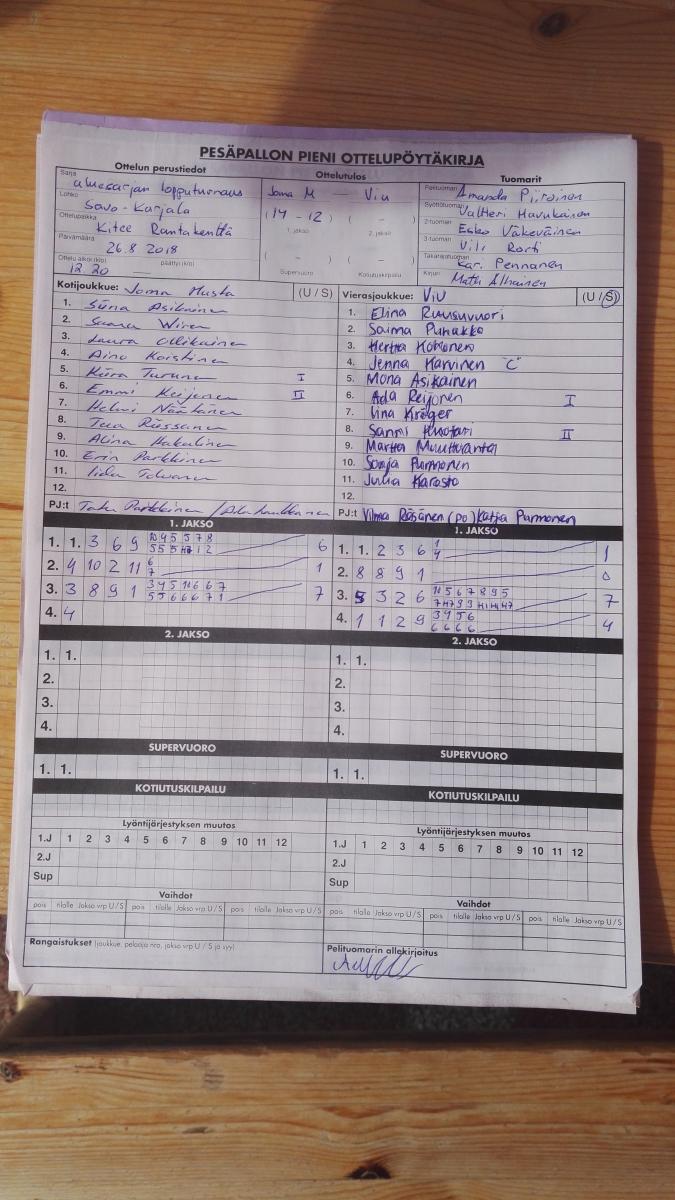 PESÄPALLON PIENI OTTELUPÖYTÄKIRJA
Ottelun perustiedot
Sarja
aluesarjan lopputurnaus
Lohko
Savo-Karjala
Ottelupaikka
Kitee Rantakenttä
Päivämäärä
26.8 2018
Ottelu alkoi (klo) päättyi (klo)
12.20
Ottelutulos
Joma M — Viu
(14 - 12) ( - )
1. jakso 2. jakso
( - ) ( - )
Supervuoro Kotiutuskilpailu
Tuomarit
Pelituomari Amanda Piiroinen
Syöttötuomari Valtteri Havukainen
2-tuomari Esko Väkeväinen
3-tuomari Ville
Takarajatuomari Kari Pennanen
Kirjuri
Kotijoukkue: Joma Musta (U / S)
1. Asikainen
2.
3. Laura Ollikainen
4. Aino Koistinen
5. Kiira Turunen I
6. Emmi Keijonen II
7. Helmi Näätänen
8. Tea Rissanen
9. Alina Hakulinen
10. Erin Parkkinen
11. Iida
12.
PJ:t Parkkinen /
Vierasjoukkue: ViU (U / S)
1. Elina Ruusuvuori
2. Saima Puhakka
3. Hertta Kokkonen
4. Jenna Karvinen "C"
5. Mona Asikainen
6. Ada Reijonen I
7. Iina Kröger
8. Sanni Huotari II
9. Martta
10. Sonja Purmonen
11. Julia Karosto
12.
PJ:t Vilma Räsänen (po) Katja Purmonen
1. JAKSO
1. 1. 3 6 9 6
2. 4 10 2 11 6 7 1
3. 3 8 9 1 7
4. 4
1. JAKSO
1. 1. 2 3 6 1
2. 8 8 9 1 0
3. 5 3 2 6 7
4. 1 1 2 9 3 4 5 6 6 6 6 6 4
2. JAKSO
1. 1.
2.
3.
4.
2. JAKSO
1. 1.
2.
3.
4.
SUPERVUORO
1. 1.
SUPERVUORO
1. 1.
KOTIUTUSKILPAILU
KOTIUTUSKILPAILU
Lyöntijärjestyksen muutos
1.J 1 2 3 4 5 6 7 8 9 10 11 12
2.J
Sup
Lyöntijärjestyksen muutos
1.J 1 2 3 4 5 6 7 8 9 10 11 12
2.J
Sup
Vaihdot
pois tilalle Jakso vrp U / S pois tilalle Jakso vrp U / S pois tilalle Jakso vrp U / S
Vaihdot
pois tilalle Jakso vrp U / S pois tilalle Jakso vrp U / S pois tilalle Jakso vrp U / S
Rangaistukset (joukkue, pelaaja nro, jakso vrp U / S ja syy)
Pelituomarin allekirjoitus